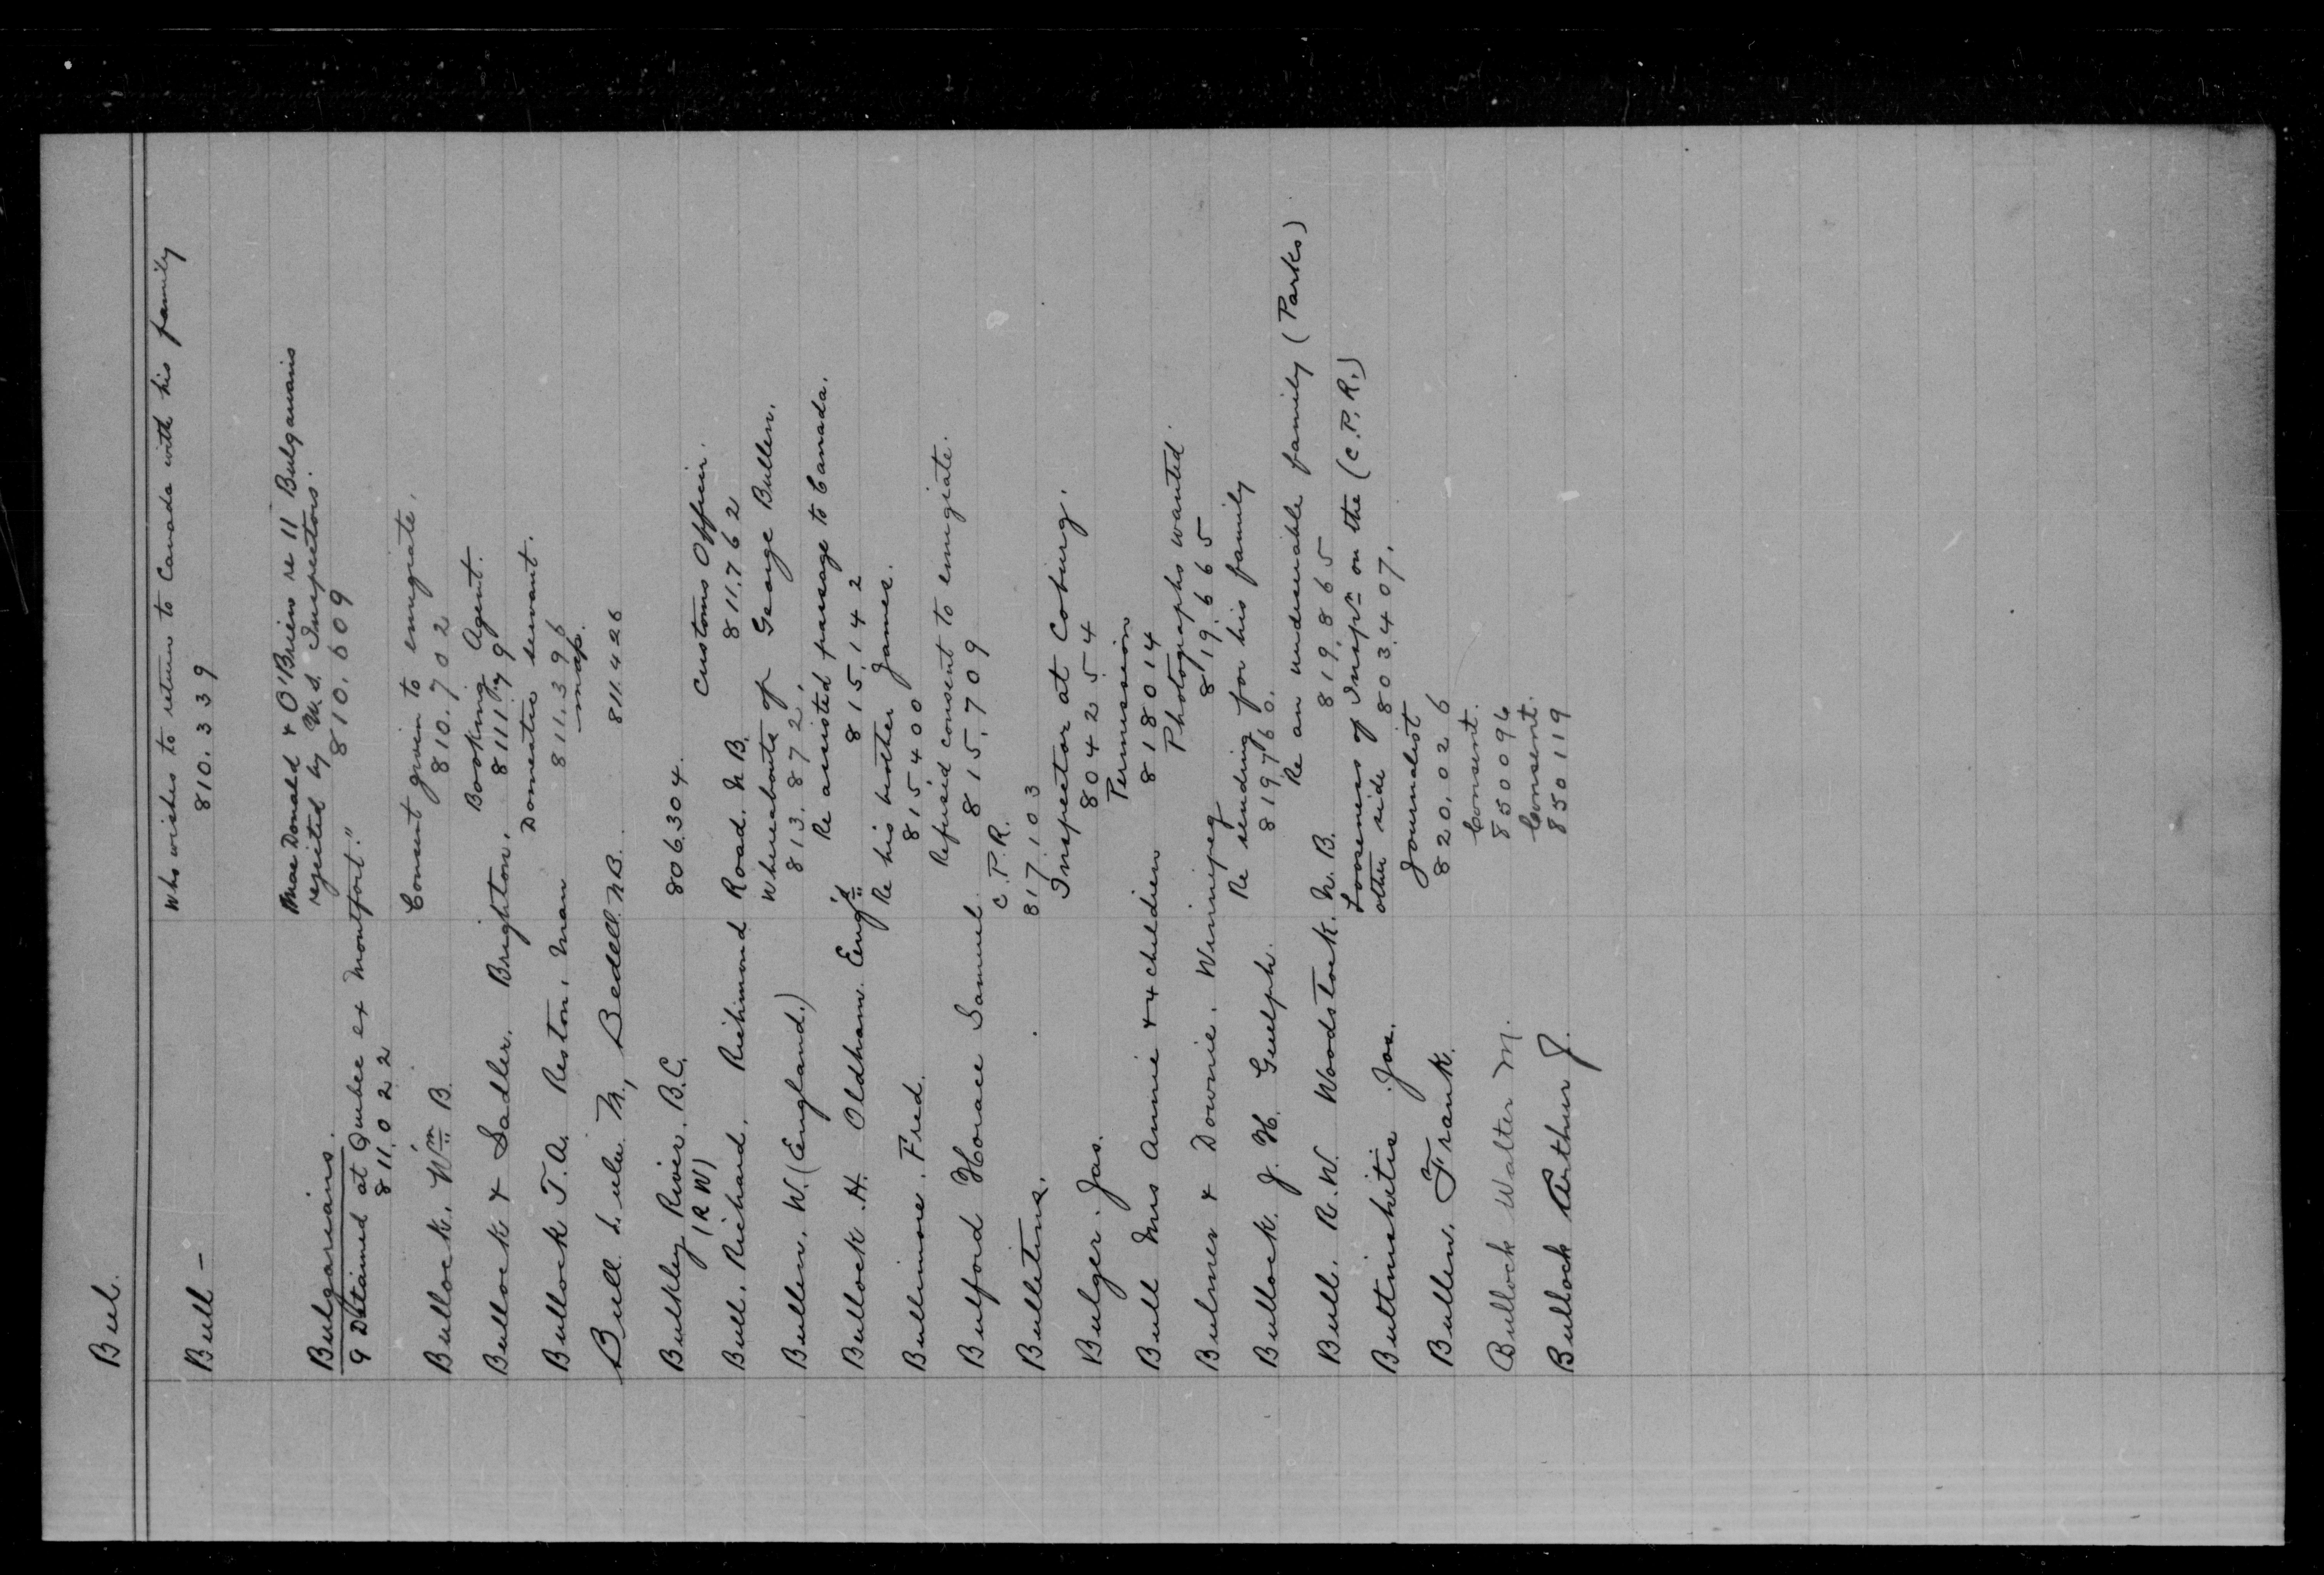 Bul.
Bull - Who wishes to return to Canada with his family
810.339
Bulgarians. MacDonald & O'Briens re 11 Bulgarians
rejected by M.S. Inspectors.
9 Detained at Quebec ex Montfort." 810.609
811.022
Bullock, Wm B. Consent given to emigrate.
810.702
Bullock & Sadler. Brighton. Booking Agent.
811179
Bullock T.A. Reston, Man Domestic servant.
811.396
map.
Bull. Lulu M., Bedell. N.B. 811.426
Bulkley River. B.C. 806.304.
(R W) Customs Officer.
Bull. Richard. Richmond Road. N.B. 811.762
Whereabouts of George Bullen.
Bullen. W. (England.) 813.872.
Re assisted passage to Canada.
Bullock .H. Oldham. Eng'd 815.142
Re his brother James.
Bullimore. Fred. 815400
Refused consent to emigrate.
Bulford Horace Samuel. 815.709
C.P.R.
Bulletins. 817103
Inspector at Coburg.
Bulger. Jas. 804254
Permission
Bull Mrs Annie & 4 children 818014
Photographs wanted.
Bulmer & Downie. Winnipeg 819.665
Re sending for his family
Bullock. J. H. Guelph. 819760.
Re an undesirable family (Parks)
Bull. R.W. Woodstock. N.B. 819.865
Looseness of Inspn on the (C.P.R.)
other side 803.407.
Jos.
Journalist
Bullen. Frank. 820.026
Consent.
Bullock Walter M. 850096
Consent.
Bullock Arthur J. 850119